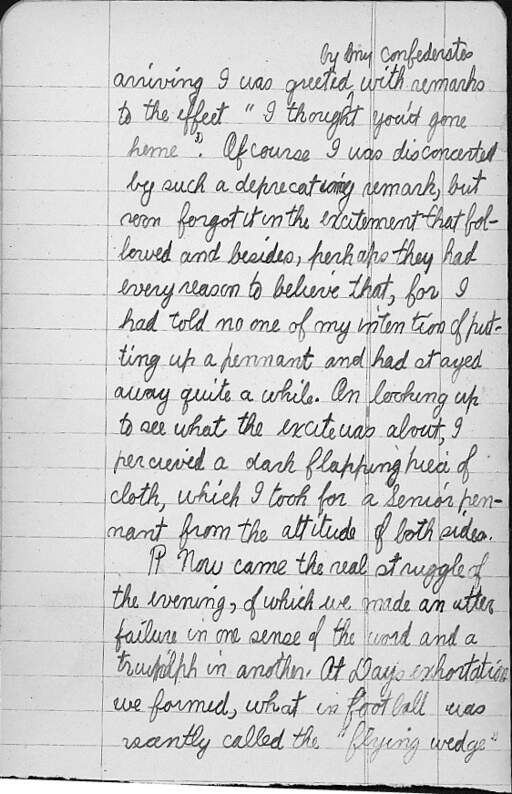 by my confederates
arriving I was greeted, with remarks
to the effect " I thought you'd gone
home ". Of course I was disconcerted
by such a deprecating remark, but
soon forgot it in the excitement that fol-
lowed and besides, perhaps they had
every reason to believe that, for I
had told no one of my intention of put-
ting up a pennant and had stayed
away quite a while. On looking up
to see what the excite was about, I
percieved a dark flapping piece of
cloth, which I took for a Senior pen-
nant from the attitude of both sides.
P Now came the real struggle of
the evening, of which we made an utter
failure in one sense of the word and a
in another. At Day's exhortation
we formed, what in football was
recently called the "flying wedge"